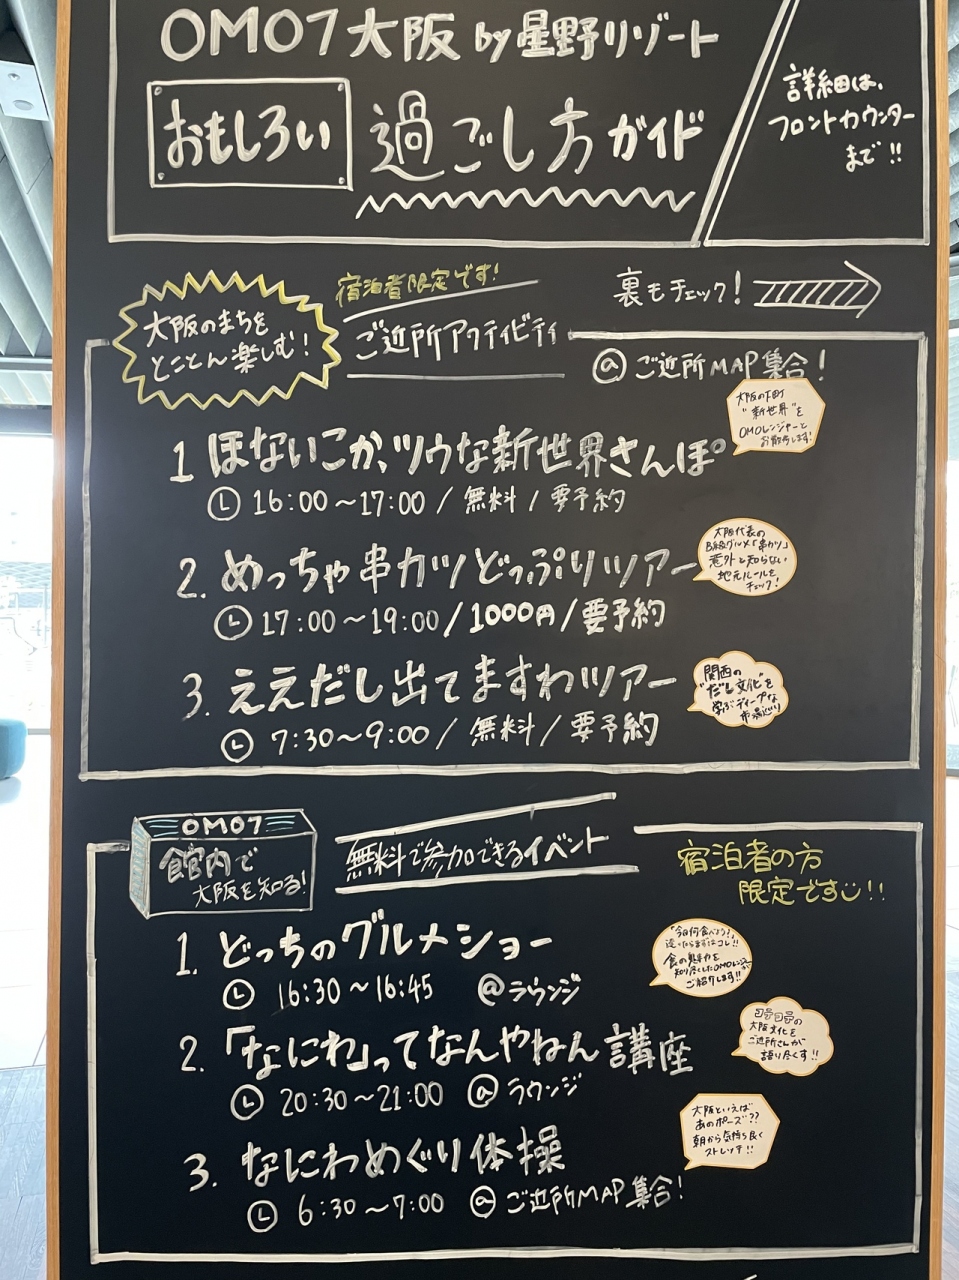 OMO7大阪 by 星野リゾート
おもしろい 過ごし方ガイド
詳細は、
フロントカウンター
まで!!
大阪のまちを
とことん楽しむ!
宿泊者限定です!
ご近所アクティビティ
裏もチェック!
@ ご近所MAP集合!
1 ほないこか、ツウな新世界さんぽ
16:00~17:00 / 無料 / 要予約
大阪の下町
"新世界"を
OMOレンジャーと
お散歩します!
2. めっちゃ串カツどっぷりツアー
17:00~19:00 / 1000円 / 要予約
大阪代表の
B級グルメ「串カツ」
意外と知らない
地元ルールを
チェック!
3. ええだし出てますわツアー
7:30~9:00 / 無料 / 要予約
関西の
"だし文化"を
学ぶディープな
市場巡り
OMO7
館内で
大阪を知る!
無料で参加できるイベント
宿泊者の方
限定です!!
1. どっちのグルメショー
16:30~16:45 @ラウンジ
「今日何食べよう?」
迷ったらまずはコレ!!
食の魅力を
知り尽くしたOMOレンジャーが
ご紹介します!!
2. 「なにわ」ってなんやねん講座
20:30~21:00 @ラウンジ
コテコテの
大阪文化を
ご近所さんが
語り尽くす!!
3. なにわめぐり体操
6:30~7:00 @ご近所MAP集合!
大阪といえば
あのポーズ??
朝から気持ち良く
ストレッチ!!